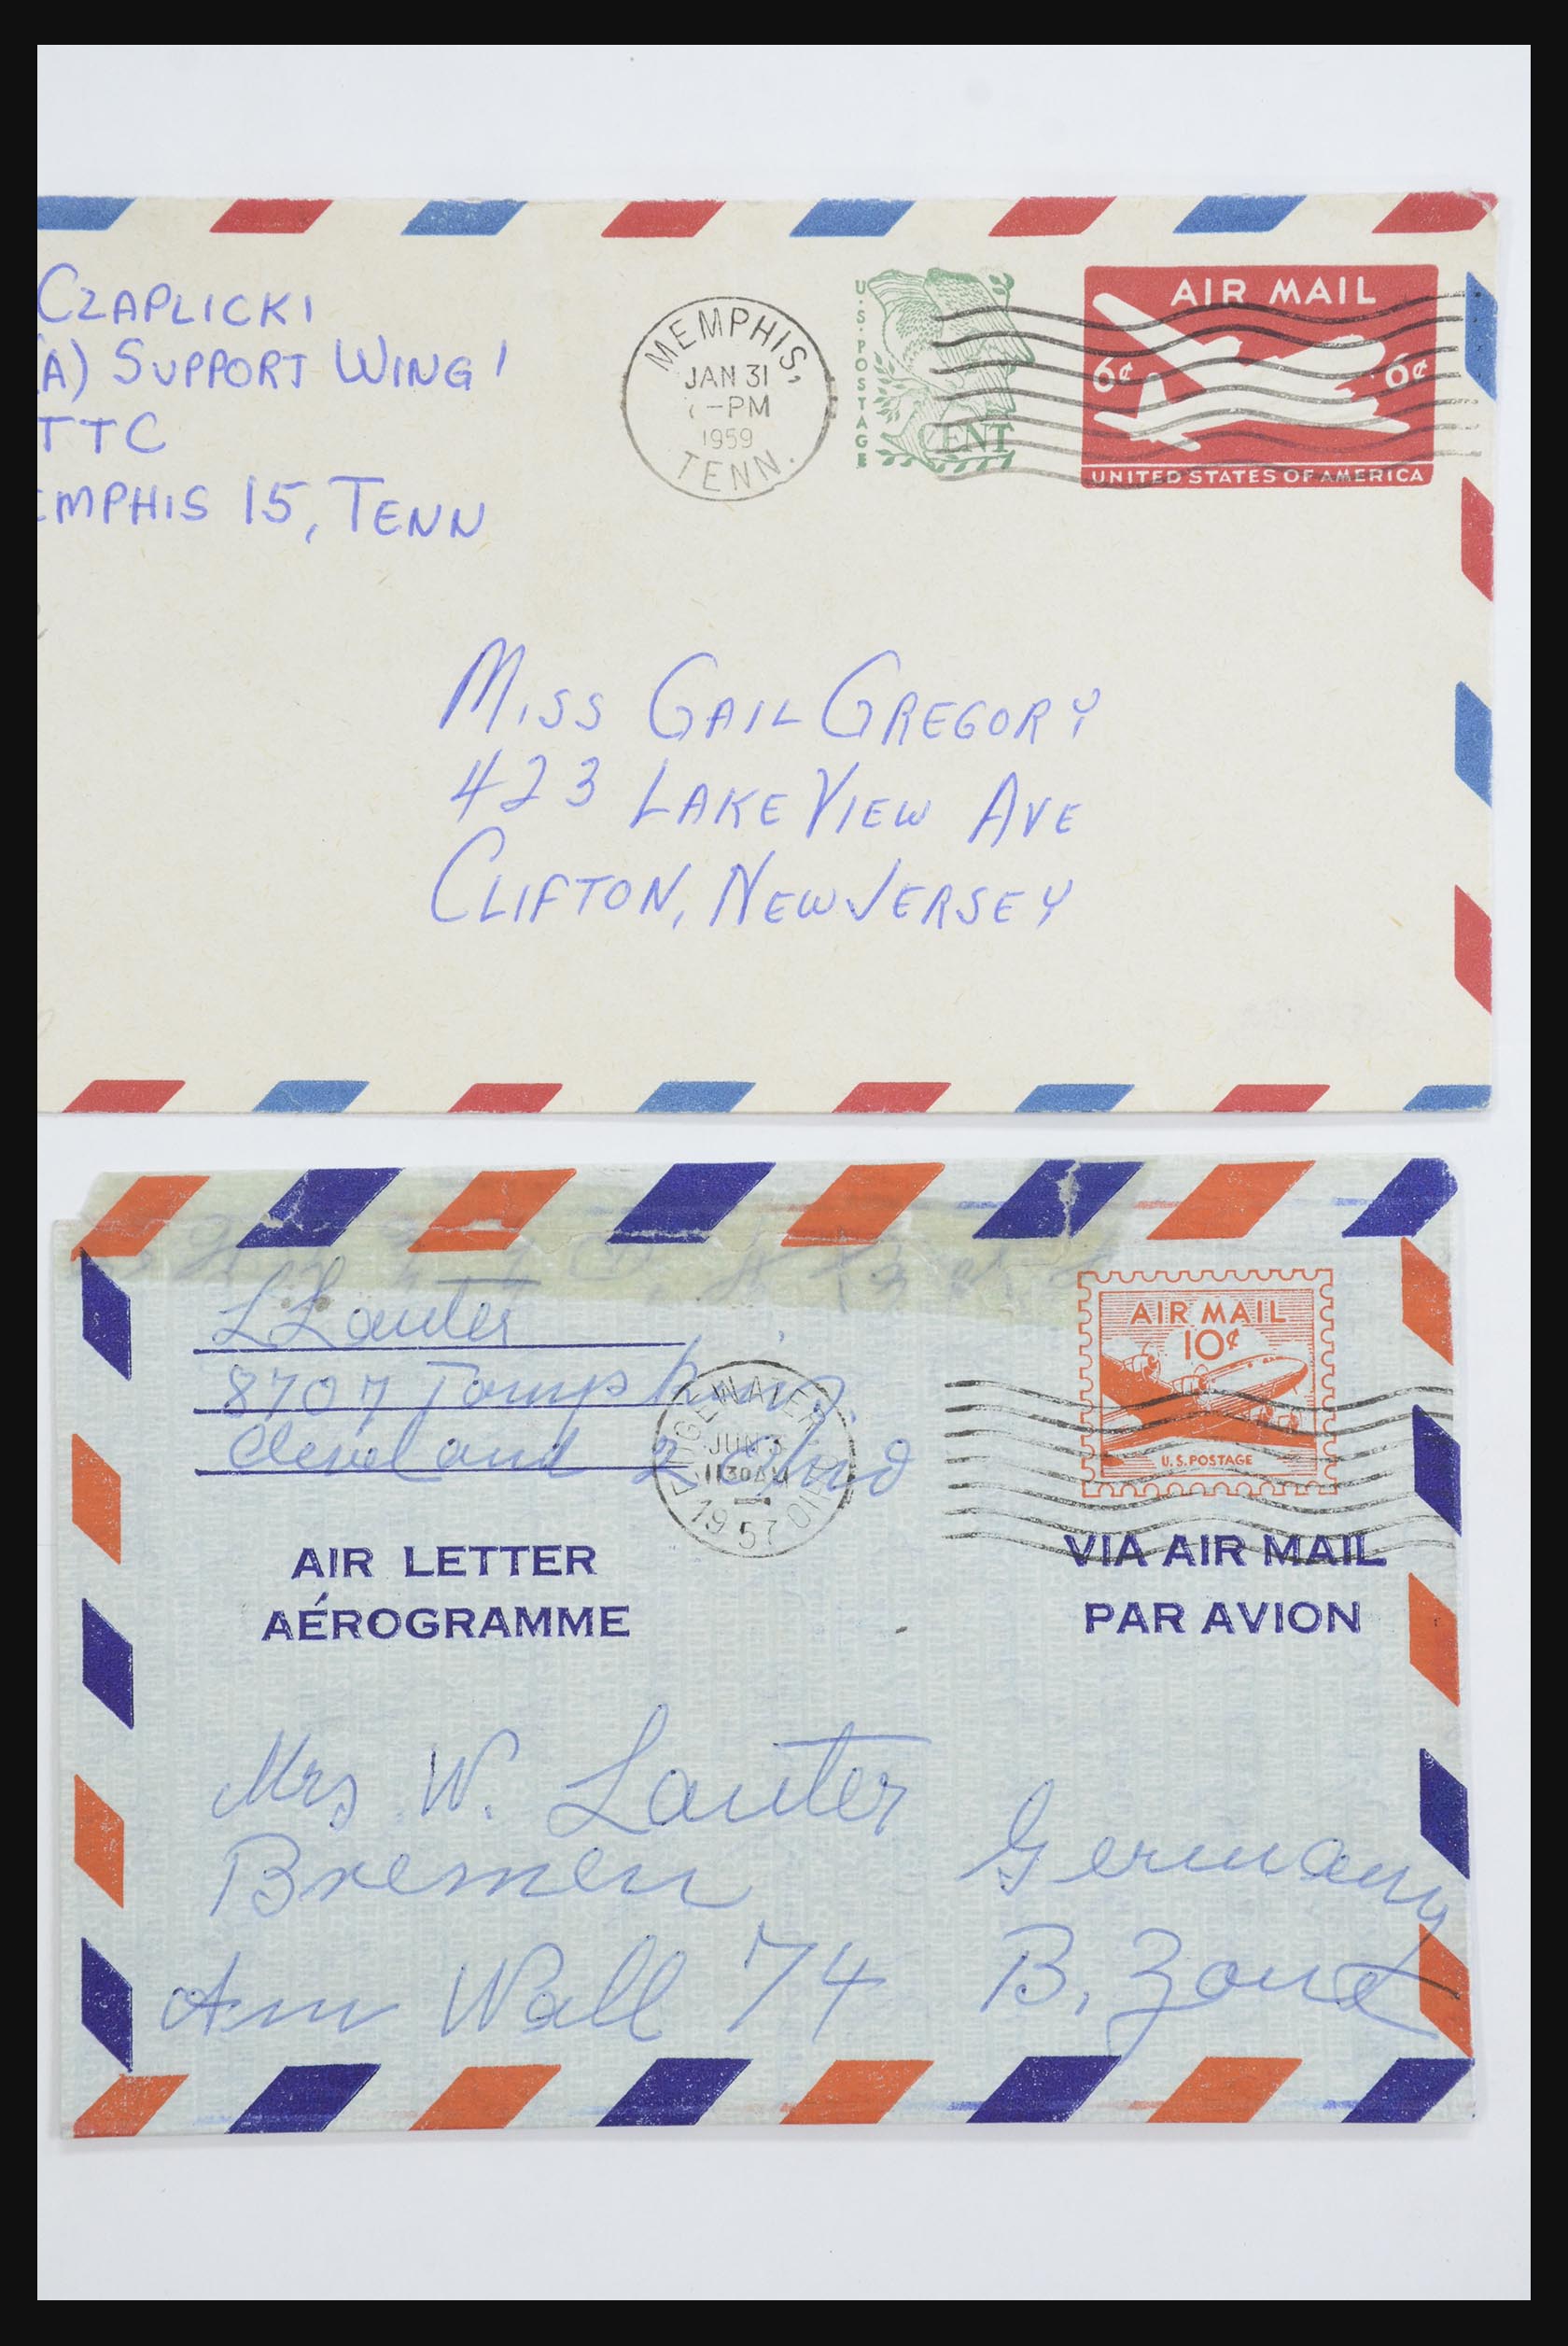 CZAPLICKI
(A) SUPPORT WING 1
TTC
EMPHIS 15, TENN
MEMPHIS,
JAN 31
-PM
1959
TENN.
U.S. POSTAGE
CENT
AIR MAIL
6¢ 6¢
UNITED STATES OF AMERICA
MISS GAIL GREGORY
423 LAKE VIEW AVE
CLIFTON, NEW JERSEY
L Lauter
8707 Tompkins
Cleveland 2 Ohio
EDGEWATER
JUN 3
1130 AM
1957
OHIO
AIR MAIL
10¢
U.S. POSTAGE
AIR LETTER
AÉROGRAMME
VIA AIR MAIL
PAR AVION
Mrs W. Lauter
Bremen Germany
Am Wall 74 B. Zone